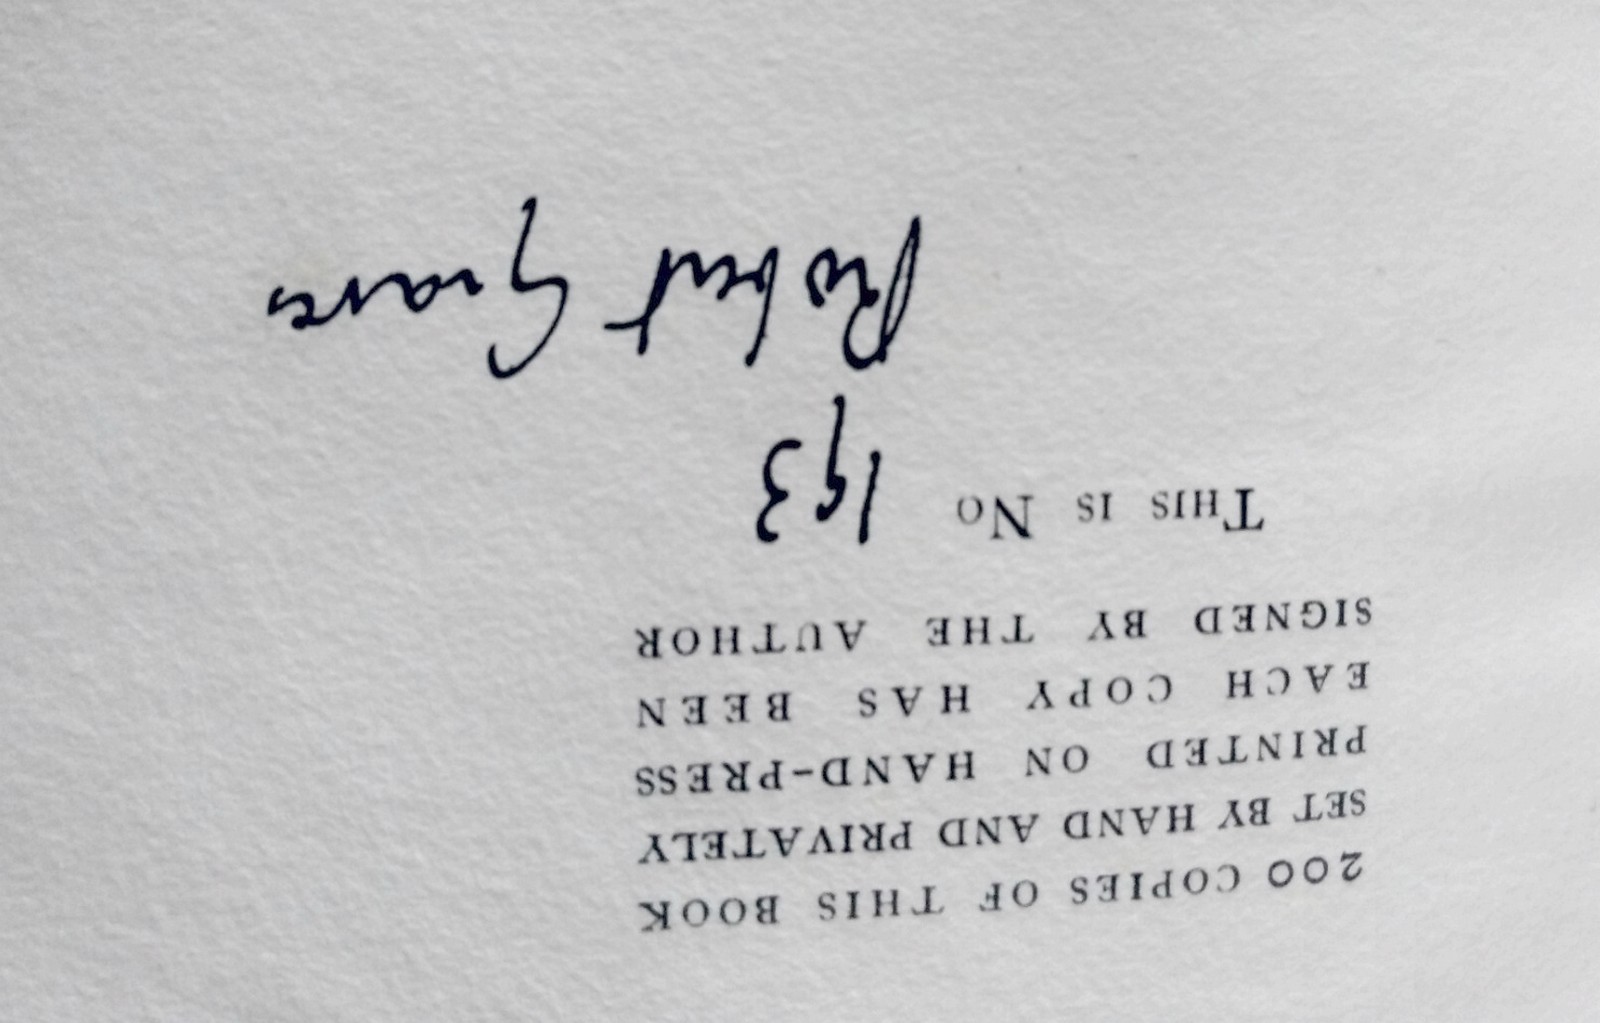 200 COPIES OF THIS BOOK
SET BY HAND AND PRIVATELY
PRINTED ON HAND-PRESS
EACH COPY HAS BEEN
SIGNED BY THE AUTHOR
THIS IS NO 193
Robert Graves